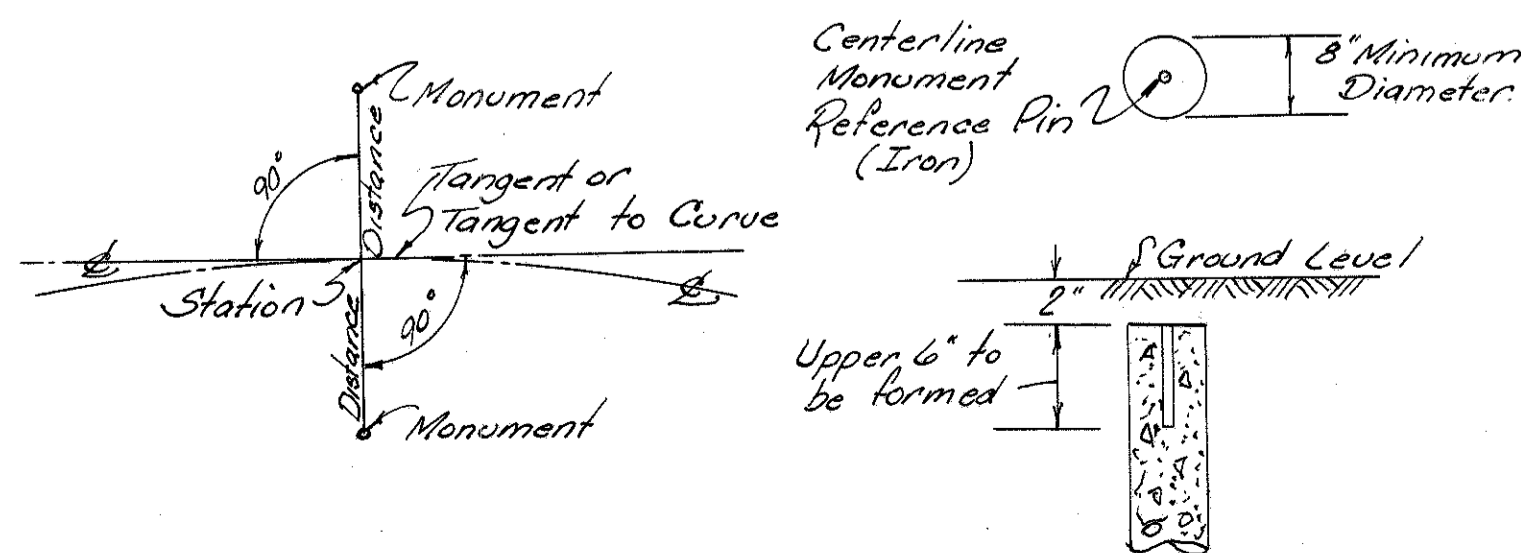 Monument
90°
Distance
Tangent or
Tangent to Curve
℄
Station
℄
Distance
90°
Monument
Centerline
Monument
Reference Pin
(Iron)
8" Minimum
Diameter.
Ground Level
2"
Upper 6" to
be formed